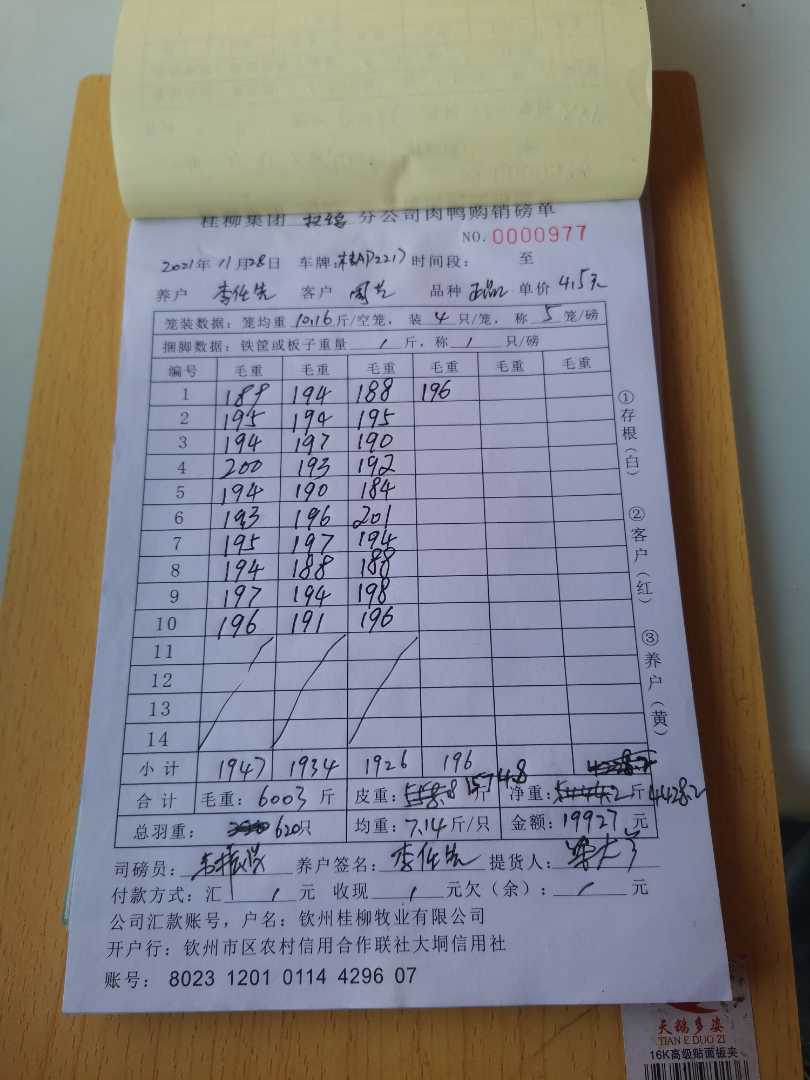 桂柳集团 分公司肉鸭购销磅单
NO. 0000977
2021年 11月28日 车牌: 时间段: 至
养户 李仕先 客户 品种 正品 单价 4.5元
笼装数据: 笼均重 10.16 斤/空笼, 装 4 只/笼, 称 5 笼/磅
捆脚数据: 铁筐或板子重量 / 斤, 称 / 只/磅
编号 毛重 毛重 毛重 毛重 毛重 毛重
1 189 194 188 196
2 195 194 195
3 194 197 190
4 200 193 192
5 194 190 184
6 193 196 201
7 195 197 194
8 194 188 188
9 197 194 198
10 196 191 196
11
12
13
14
小计 1947 1934 1926 196
合计 毛重: 6003 斤 皮重: 1574.8 斤 净重: 斤 4428.2
总羽重: 620只 均重: 7.14 斤/只 金额: 19927 元
司磅员: 养户签名: 李仕先 提货人:
付款方式: 汇 / 元 收现 / 元欠(余): / 元
公司汇款账号, 户名: 钦州桂柳牧业有限公司
开户行: 钦州市区农村信用合作联社大垌信用社
账号: 8023 1201 0114 4296 07
①存根(白)
②客户(红)
③养户(黄)
天鹅多姿
TIAN E DUO ZI
16K高级贴面板夹